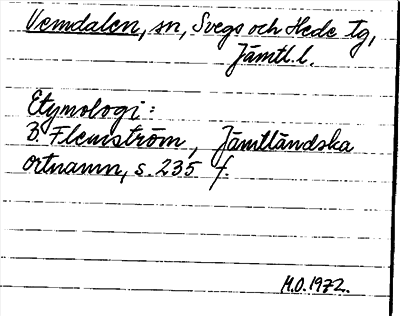 Vemdalen, sn, Svegs och Hede tg,
Jämtl.l.
Etymologi:
B. Flemström, Jämtländska
ortnamn, s. 235 f.
M.O. 1972.